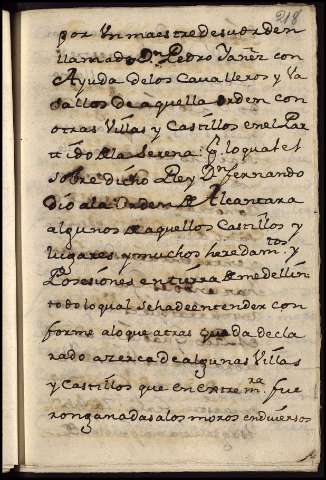 218
por Un maestre desu orden
llamado Dn Pedro Yañez con
Ayuda delos Cavalleros y Va
sallos de aquella orden con
otras Villas y Castillos enel Par
tido dela Serena: q̃ lo qual el
sobre dicho Rey Dn fernando
Dio ala orden de Alcantara
algunos de aquellos Castillos y
lugares y muchos heredam.tos y
Posesiones en tierra de medellin
todo lo qual se hade entender con
forme alo que atras queda decla
rado azerca de algunas Villas
y Castillos que en extre m.ra fue
ron ganadas alos moros en diversos